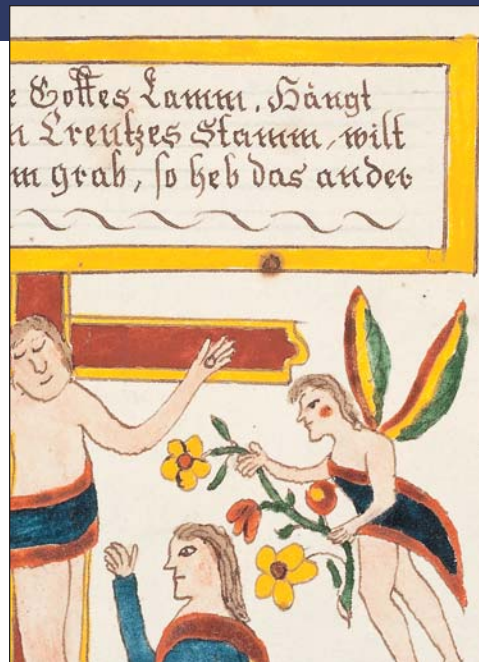 e Gottes Lamm, Hängt
n Creutzes Stamm, wilt
m grab, so heb das ander